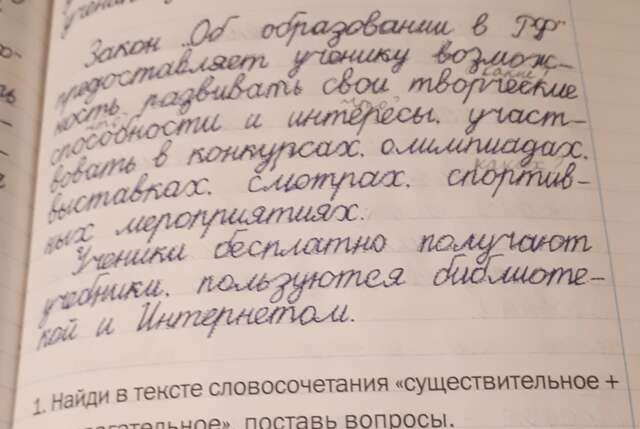 учени
Закон „Об образовании в РФ"
предоставляет ученику возмож-
ность развивать свои творческие
какие?
способности и интересы, участ-
что?
что?
вовать в конкурсах, олимпиадах,
выставках, смотрах, спортив-
каких?
ных мероприятиях.
Ученики бесплатно получают
учебники, пользуются библиоте-
кой и Интернетом.
1. Найди в тексте словосочетания «существительное +
лагательное», поставь вопросы.